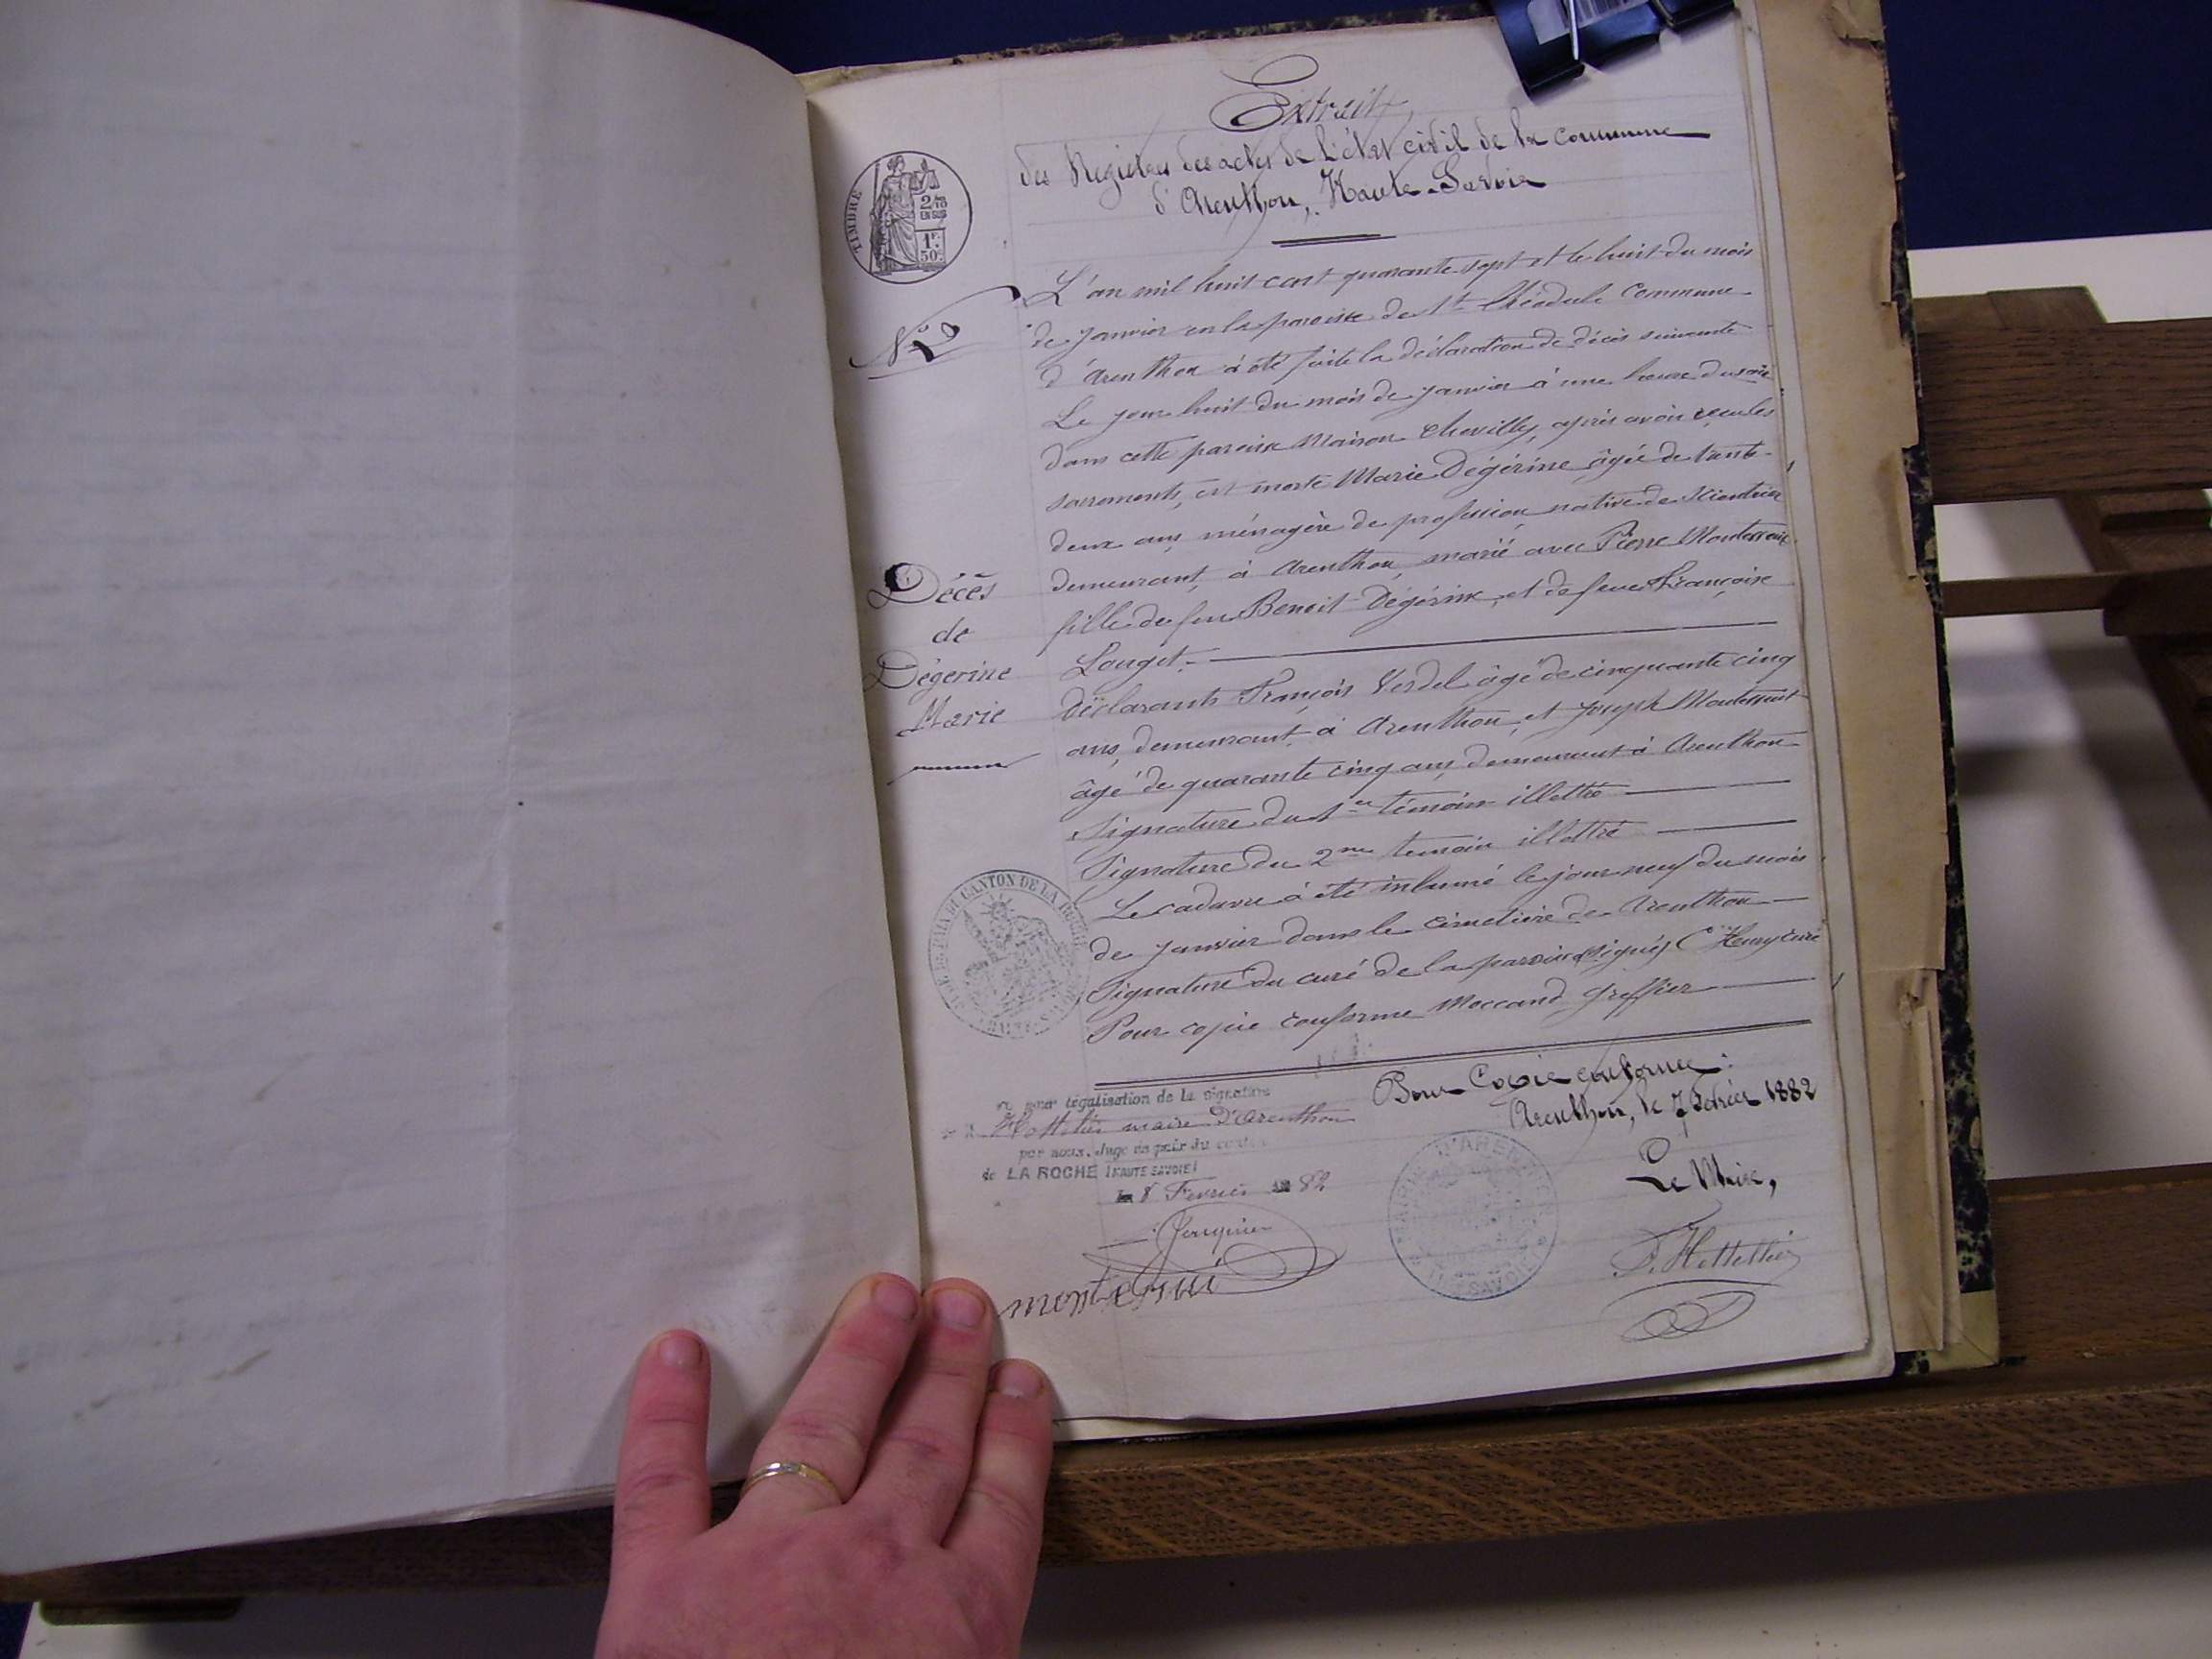 Extrait
des Registres des actes de l'état civil de la commune
d'Arenthon, Haute-Savoie
TIMBRE
2/10
EN SUS
1F.
50c.
L'an mil huit cent quarante sept et le huit du mois
de janvier en la paroisse de St Théodule Commune
d'Arenthon à été faite la déclaration de décès suivante
Le jour huit du mois de janvier à une heure du soir
dans cette paroisse maison Chevilly, après avoir reçu les
sacrements, est morte Marie Dégérine âgée de trente-
deux ans, ménagère de profession native de Scientrier
demeurant à Arenthon, marié avec Pierre Montessuit
fille de feu Benoit Dégérine, et de feue Françoise
Longet.
Déclarants François Verdel âgé de cinquante cinq
ans, demeurant à Arenthon, et Joseph Montessuit
âgé de quarante cinq ans, demeurant à Arenthon
Signature du 1er témoin illettré
Signature du 2me temoin illettré
Le cadavre à été inhumé le jour neuf du mois
de janvier dans le cimetière de Arenthon
Signature du curé de la paroisse signé, Henry curé
Pour copie conforme Moccand Greffier
N°
Décès
de
Dégerine
Marie
CANTON DE LA ROCHE
Pour Copie conforme:
Arenthon, le 7 Février 1882
Le Maire,
F. Hottellier
MAIRIE D'ARENTHON
SAVOIE
pour légalisation de la signature
Hottelier maire d'Arenthon
par nous, Juge de paix du canton
de LA ROCHE (HAUTE SAVOIE)
Le 8 Fevrier 1882
montesui